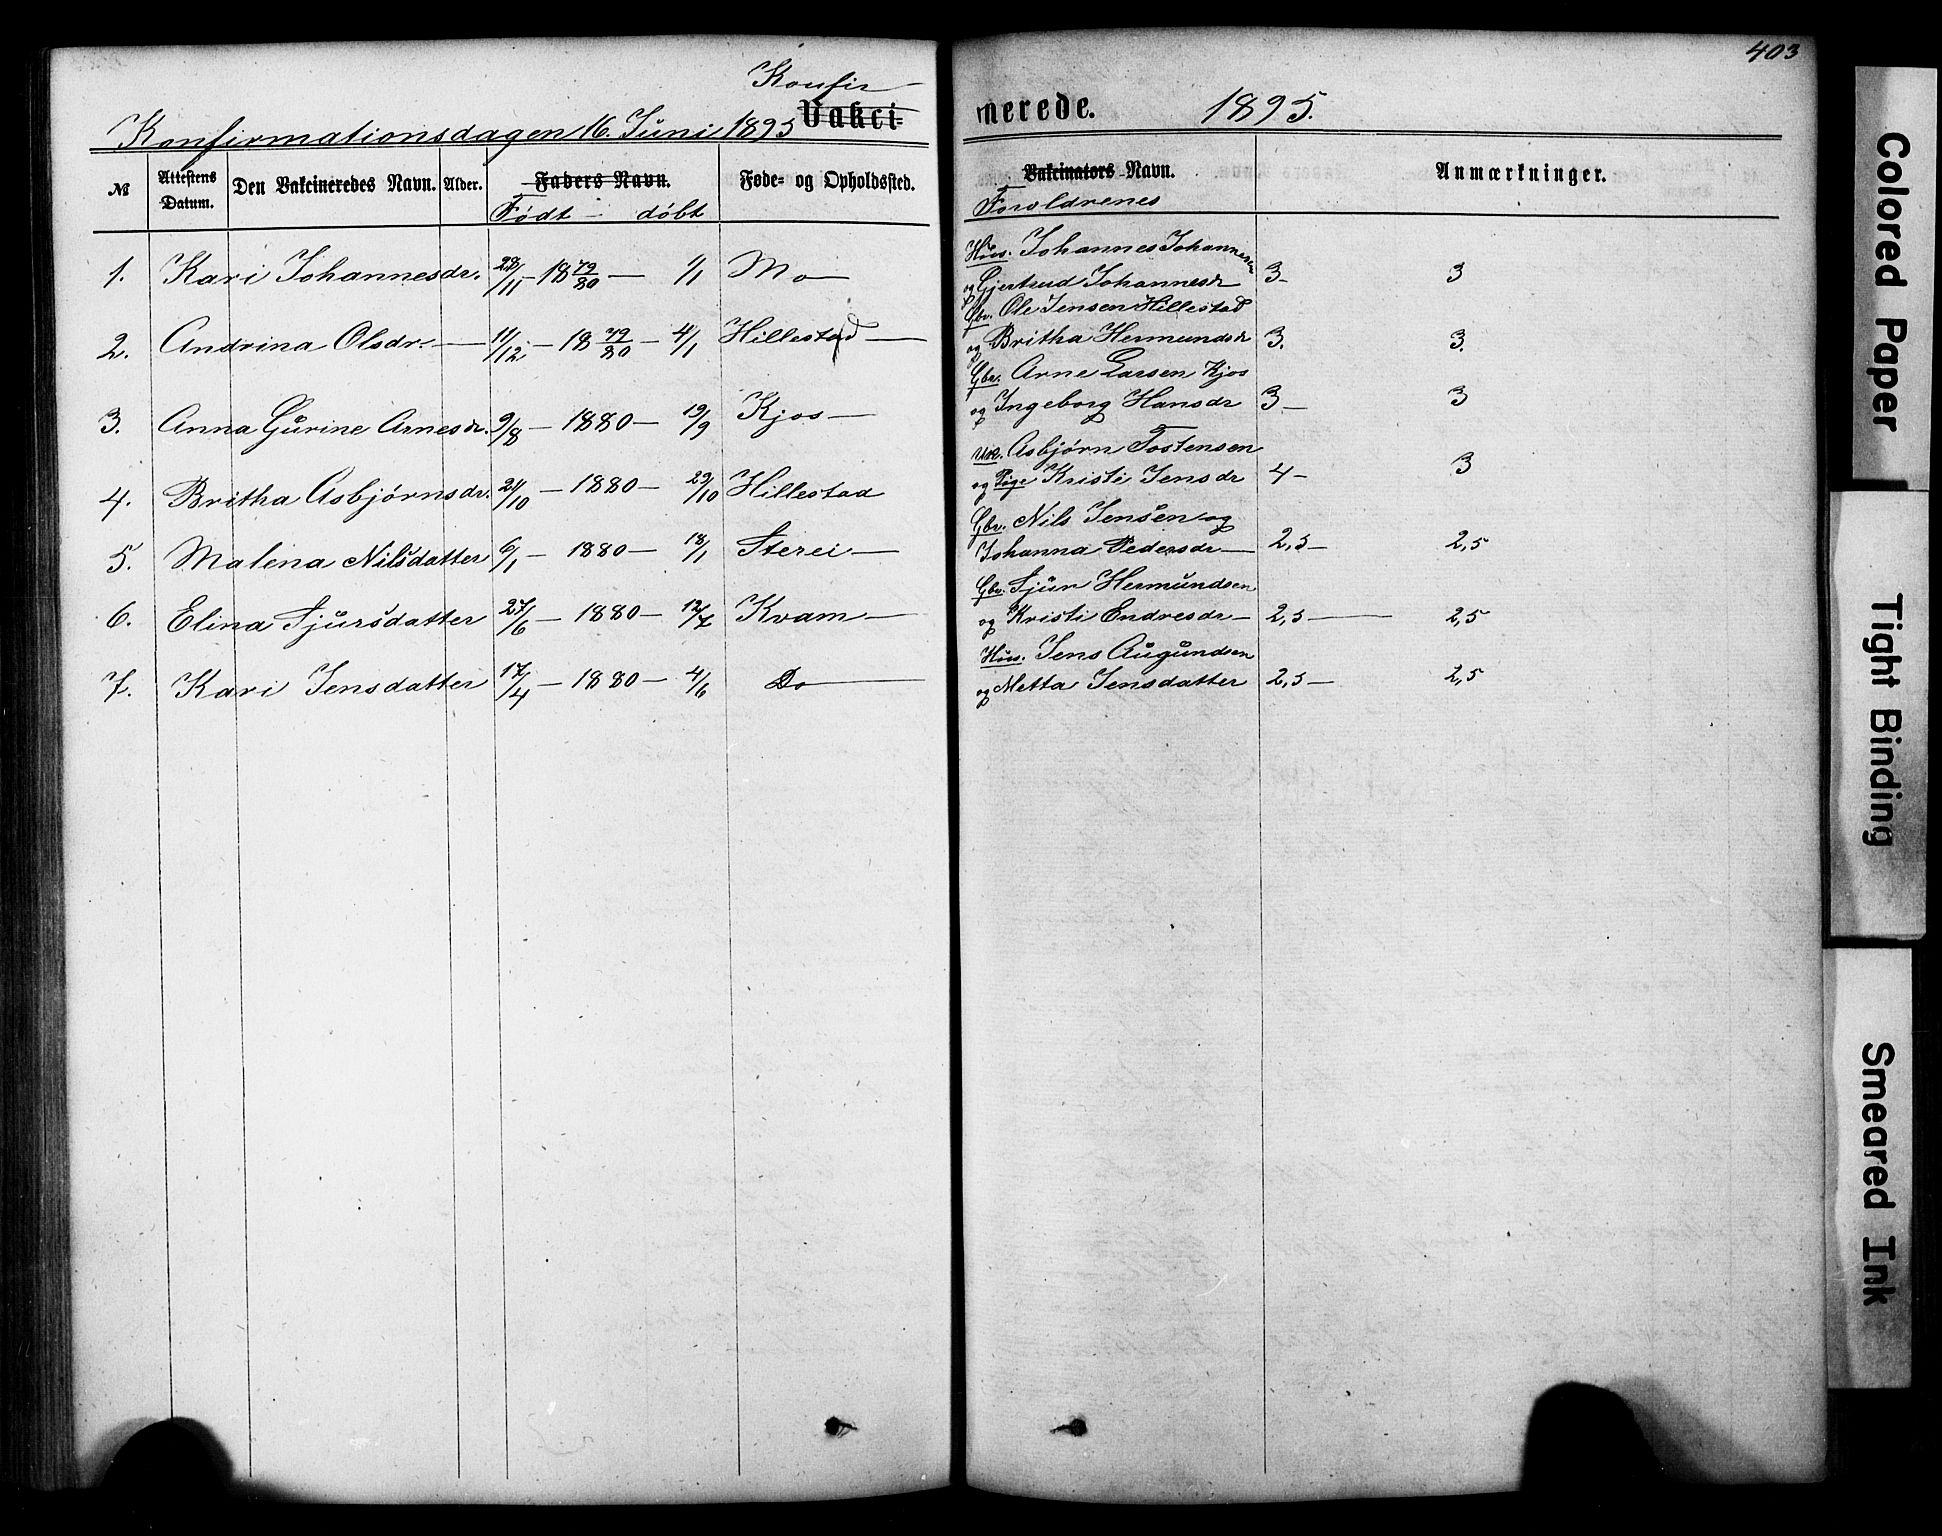 403
Konfir
Konfirmationsdagen 16. Juni 1895 Vakci- nerede. 1895.
№ Attestens Datum. Den Vakcineredes Navn. Alder. Faders Navn. Føde- og Opholdssted. Vakcinators Navn. Anmærkninger.
Født - døbt Forældrenes
Huus. Johannes Johannesen
1. Kari Johannesdr. 28/11 - 18 79/80 - 1/1 Mo - og Gjertrud Johannesdr 3- 3
Gbr. Ole Jensen Hillestad
2. Andrina Olsdr. - 11/12 - 18 79/80 - 4/1 Hillestad - og Britha Hermundsdr 3. 3.
Gbr. Arne Larsen Kjos
3. Anna Gurine Arnesdr. 9/8 - 1880 - 19/9 Kjos - og Ingeborg Hansdr 3- 3
Ubr. Asbjørn Tostensen
4. Britha Asbjørnsdr. 21/10 - 1880 - 29/10 Hillestad og Pige Kristi Jensdr 4- 3
Gbr. Nils Jensen og
5. Malena Nilsdatter 6/1 - 1880 - 18/1 Sterei - Johanna Pedersdr - 2,5- 2,5
Gbr. Sjur Hermundsen
6. Elina Sjursdatter 27/6 - 1880 - 12/7 Kvam - og Kristi Endresdr - 2,5 - 2,5
Huus. Jens Augundsen
7. Kari Jensdatter 17/4 - 1880 - 4/6 Do - og Metta Jensdatter 2,5- 2,5
Colored Paper
Tight Binding
Smeared Ink